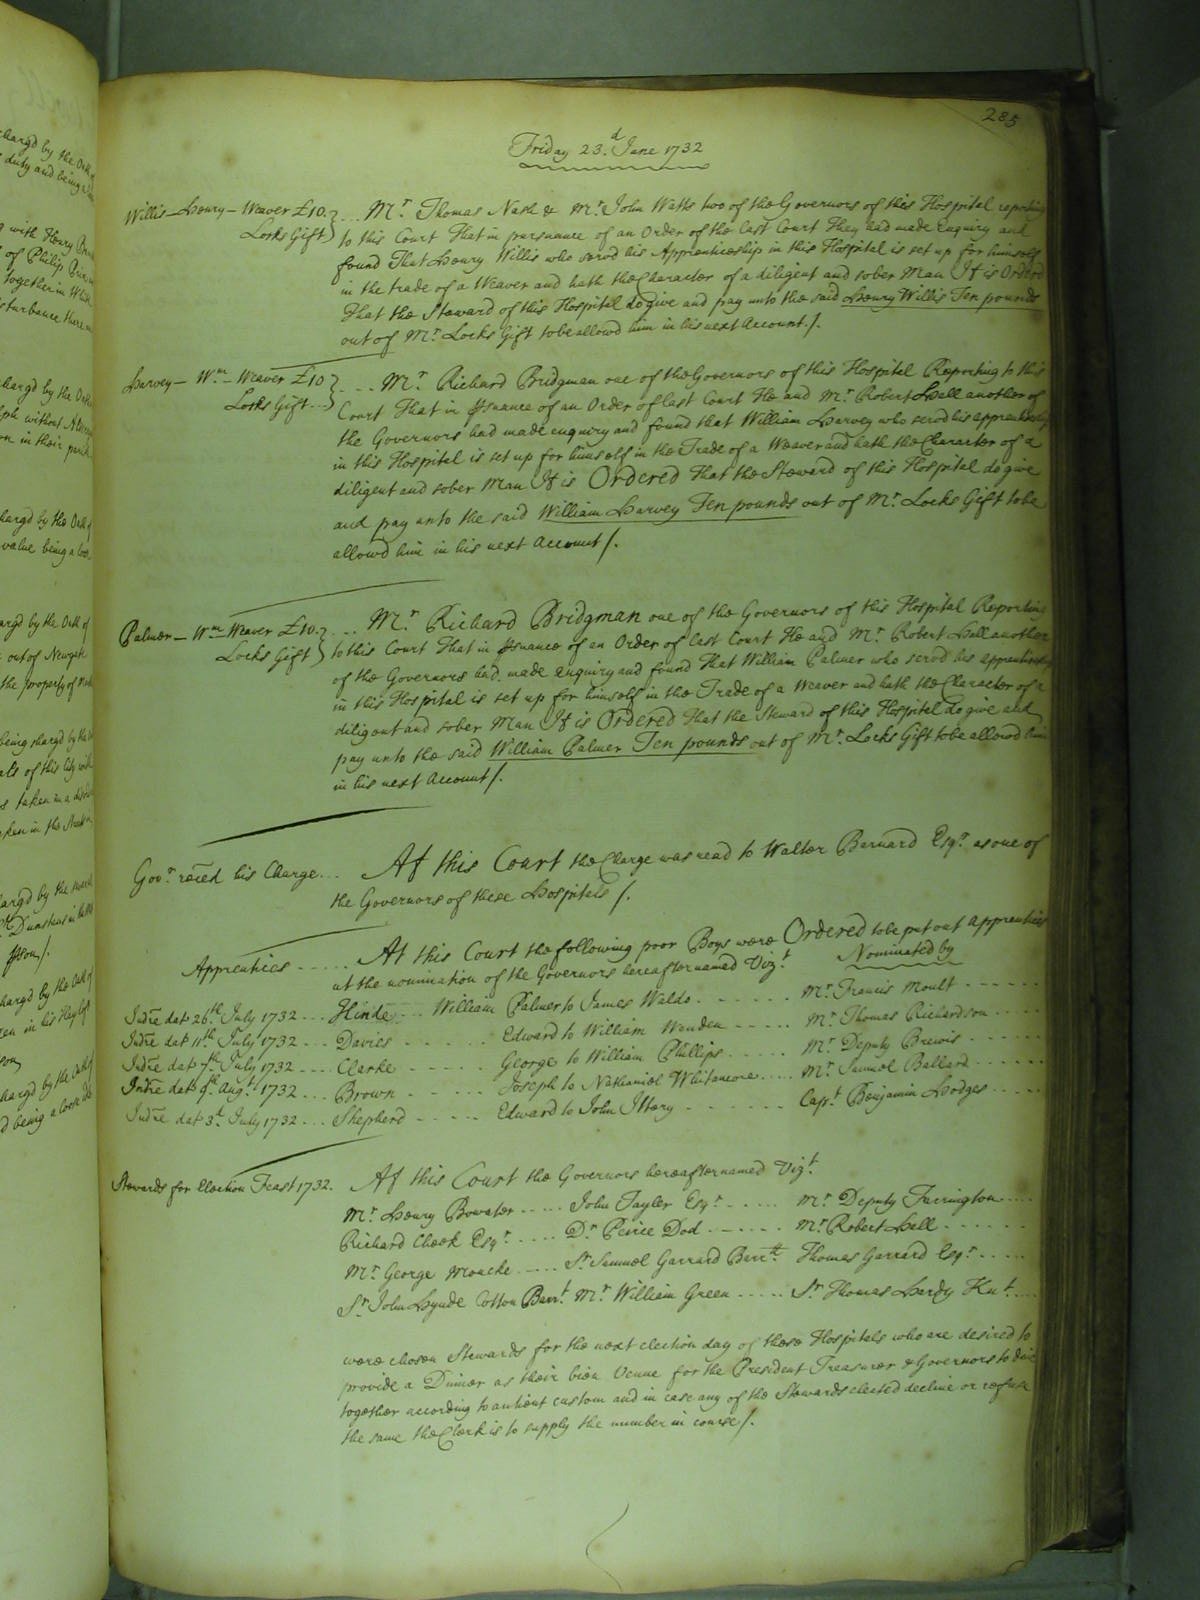 285
Friday 23.d June 1732
Willis – Henry – Weaver £10.
Locks Gift
... Mr. Thomas Nash & Mr. John Watts two of the Governors of this Hospital reporting
to this Court That in pursuance of an Order of the last Court They had made Enquiry and
found That Henry Willis who servd his Apprenticeship in this Hospital is set up for himself
in the trade of a Weaver and hath the Character of a diligent and sober Man It is Ordered
That the Steward of this Hospital do give and pay unto the said Henry Willis Ten pounds
out of Mr. Locks Gift to be allowd him in his next Account /.
Harvey – Wm. – Weaver £10
Locks Gift ...
... Mr. Richard Bridgman one of the Governors of this Hospital Reporting to this
Court That in Psuance of an Order of last Court He and Mr. Robert Hell another of
the Governors had made enquiry and found that William Harvey who servd his apprenticeship
in this Hospital is set up for himself in the Trade of a Weaver and hath the Character of a
diligent and sober Man It is Ordered That the Steward of this Hospital do give
and pay unto the said William Harvey Ten pounds out of Mr. Locks Gift to be
allowd him in his next Account /.
Palmer – Wm. Weaver £10.
Locks Gift
... Mr. Richard Bridgman one of the Governors of this Hospital Reporting
to this Court That in Psuance of an Order of last Court He and Mr. Robert Hell another
of the Governors had made enquiry and found That William Palmer who servd his apprenticeship
in this Hospital is set up for himself in the Trade of a Weaver and hath the Character of a
diligent and sober Man It is Ordered That the Steward of this Hospital do give and
pay unto the said William Palmer Ten pounds out of Mr. Locks Gift to be allowd him
in his next Account /.
Govr. reced his Charge ...
At this Court the Charge was read to Walter Bernard Esqr. as one of
the Governors of these Hospitals /.
Apprentices ......
At this Court the following poor Boys were Ordered to be put out apprentices
at the nomination of the Governors hereafter named Vizt. Nominated by
Indre dat 26.th July 1732 ... Hinde ... William Palmer to James Waldo ...... Mr. Francis Moult ......
Indre dat 11.th July 1732 ... Davies ...... Edward to William Wenden ..... Mr. Thomas Richardson .....
Indre dat 7.th July 1732 .... Clarke ...... George to William Phillips ..... Mr. Deputy Brewis ......
Indre dat 9.th Augt. 1732 ... Brown ...... Joseph to Nathaniel Whitamore .... Mr. Samuel Ballard ......
Indre dat 3.d July 1732 ... Shepherd ..... Edward to John Ittery ....... Capt. Benjamin Hodges .....
Stewards for Election Feast 1732.
At this Court the Governors hereafter named Vizt.
Mr. Henry Bowater ..... John Tayler Esqr. ..... Mr. Deputy Farrington ....
Richard Cheek Esqr. .... Dr. Peirce Dod ...... Mr. Robert Hell ......
Mr. George Moucke .... Sr. Samuel Garrard Barrtt. Thomas Garrard Esqr. .....
Sr. John Hynde Cotton Barrt. Mr. William Green ..... Sr. Thomas Hardy Knt. ....
were chosen Stewards for the next election day of these Hospitals who are desired to
provide a Dinner as their bien Venue for the President Treasurer & Governors to dine
together according to antient custom and in case any of the Stewards elected decline or refuse
the same the Clerk is to supply the number in course /.